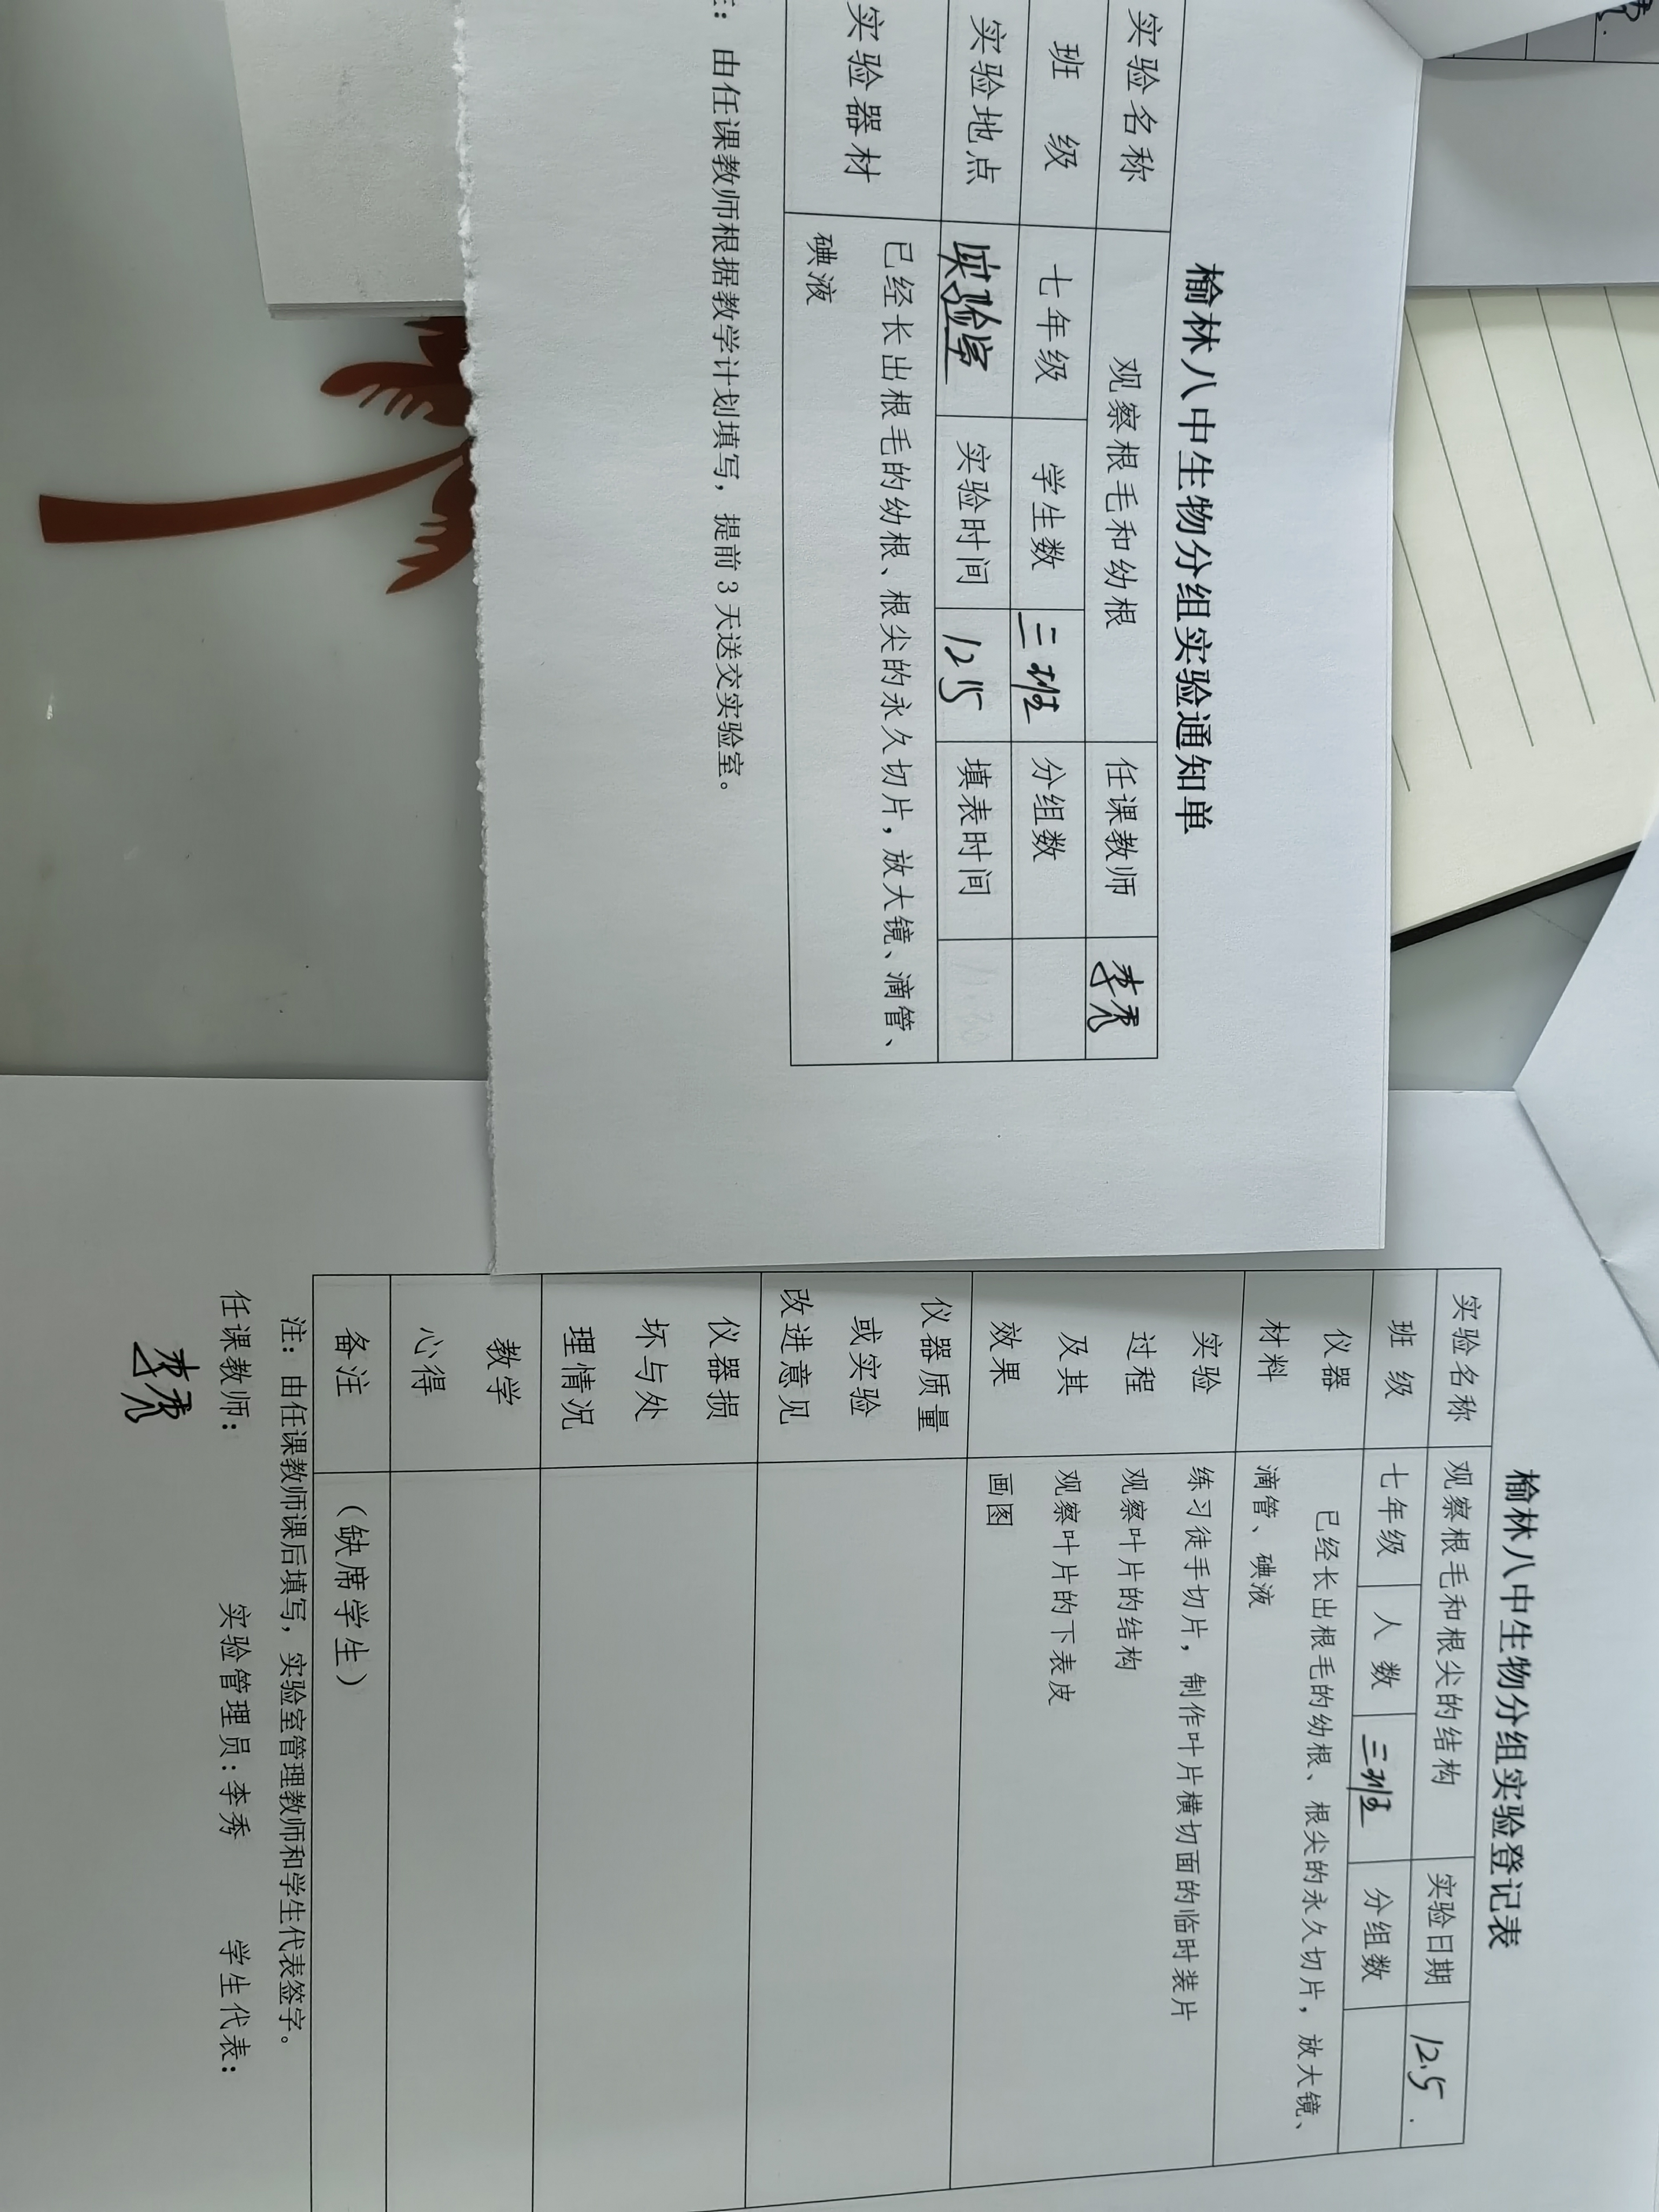 榆林八中生物分组实验通知单
实验名称 观察根毛和幼根 任课教师 李秀
班 级 七年级 学生数 三班 分组数
实验地点 实验室 实验时间 12.5 填表时间 11.30
实验器材 已经长出根毛的幼根、根尖的永久切片，放大镜、滴管、
碘液
：由任课教师根据教学计划填写，提前 3 天送交实验室。
榆林八中生物分组实验登记表
实验名称 观察根毛和根尖的结构 实验日期 12.5.
班 级 七年级 人 数 三班 分组数
仪器 已经长出根毛的幼根、根尖的永久切片，放大镜、
材料 滴管、碘液
实验 练习徒手切片，制作叶片横切面的临时装片
过程 观察叶片的结构
及其 观察叶片的下表皮
效果 画图
仪器质量
或实验
改进意见
仪器损
坏与处
理情况
教学
心得
备注 （缺席学生）
注：由任课教师课后填写，实验室管理教师和学生代表签字。
任课教师： 实验管理员：李秀 学生代表：
李秀